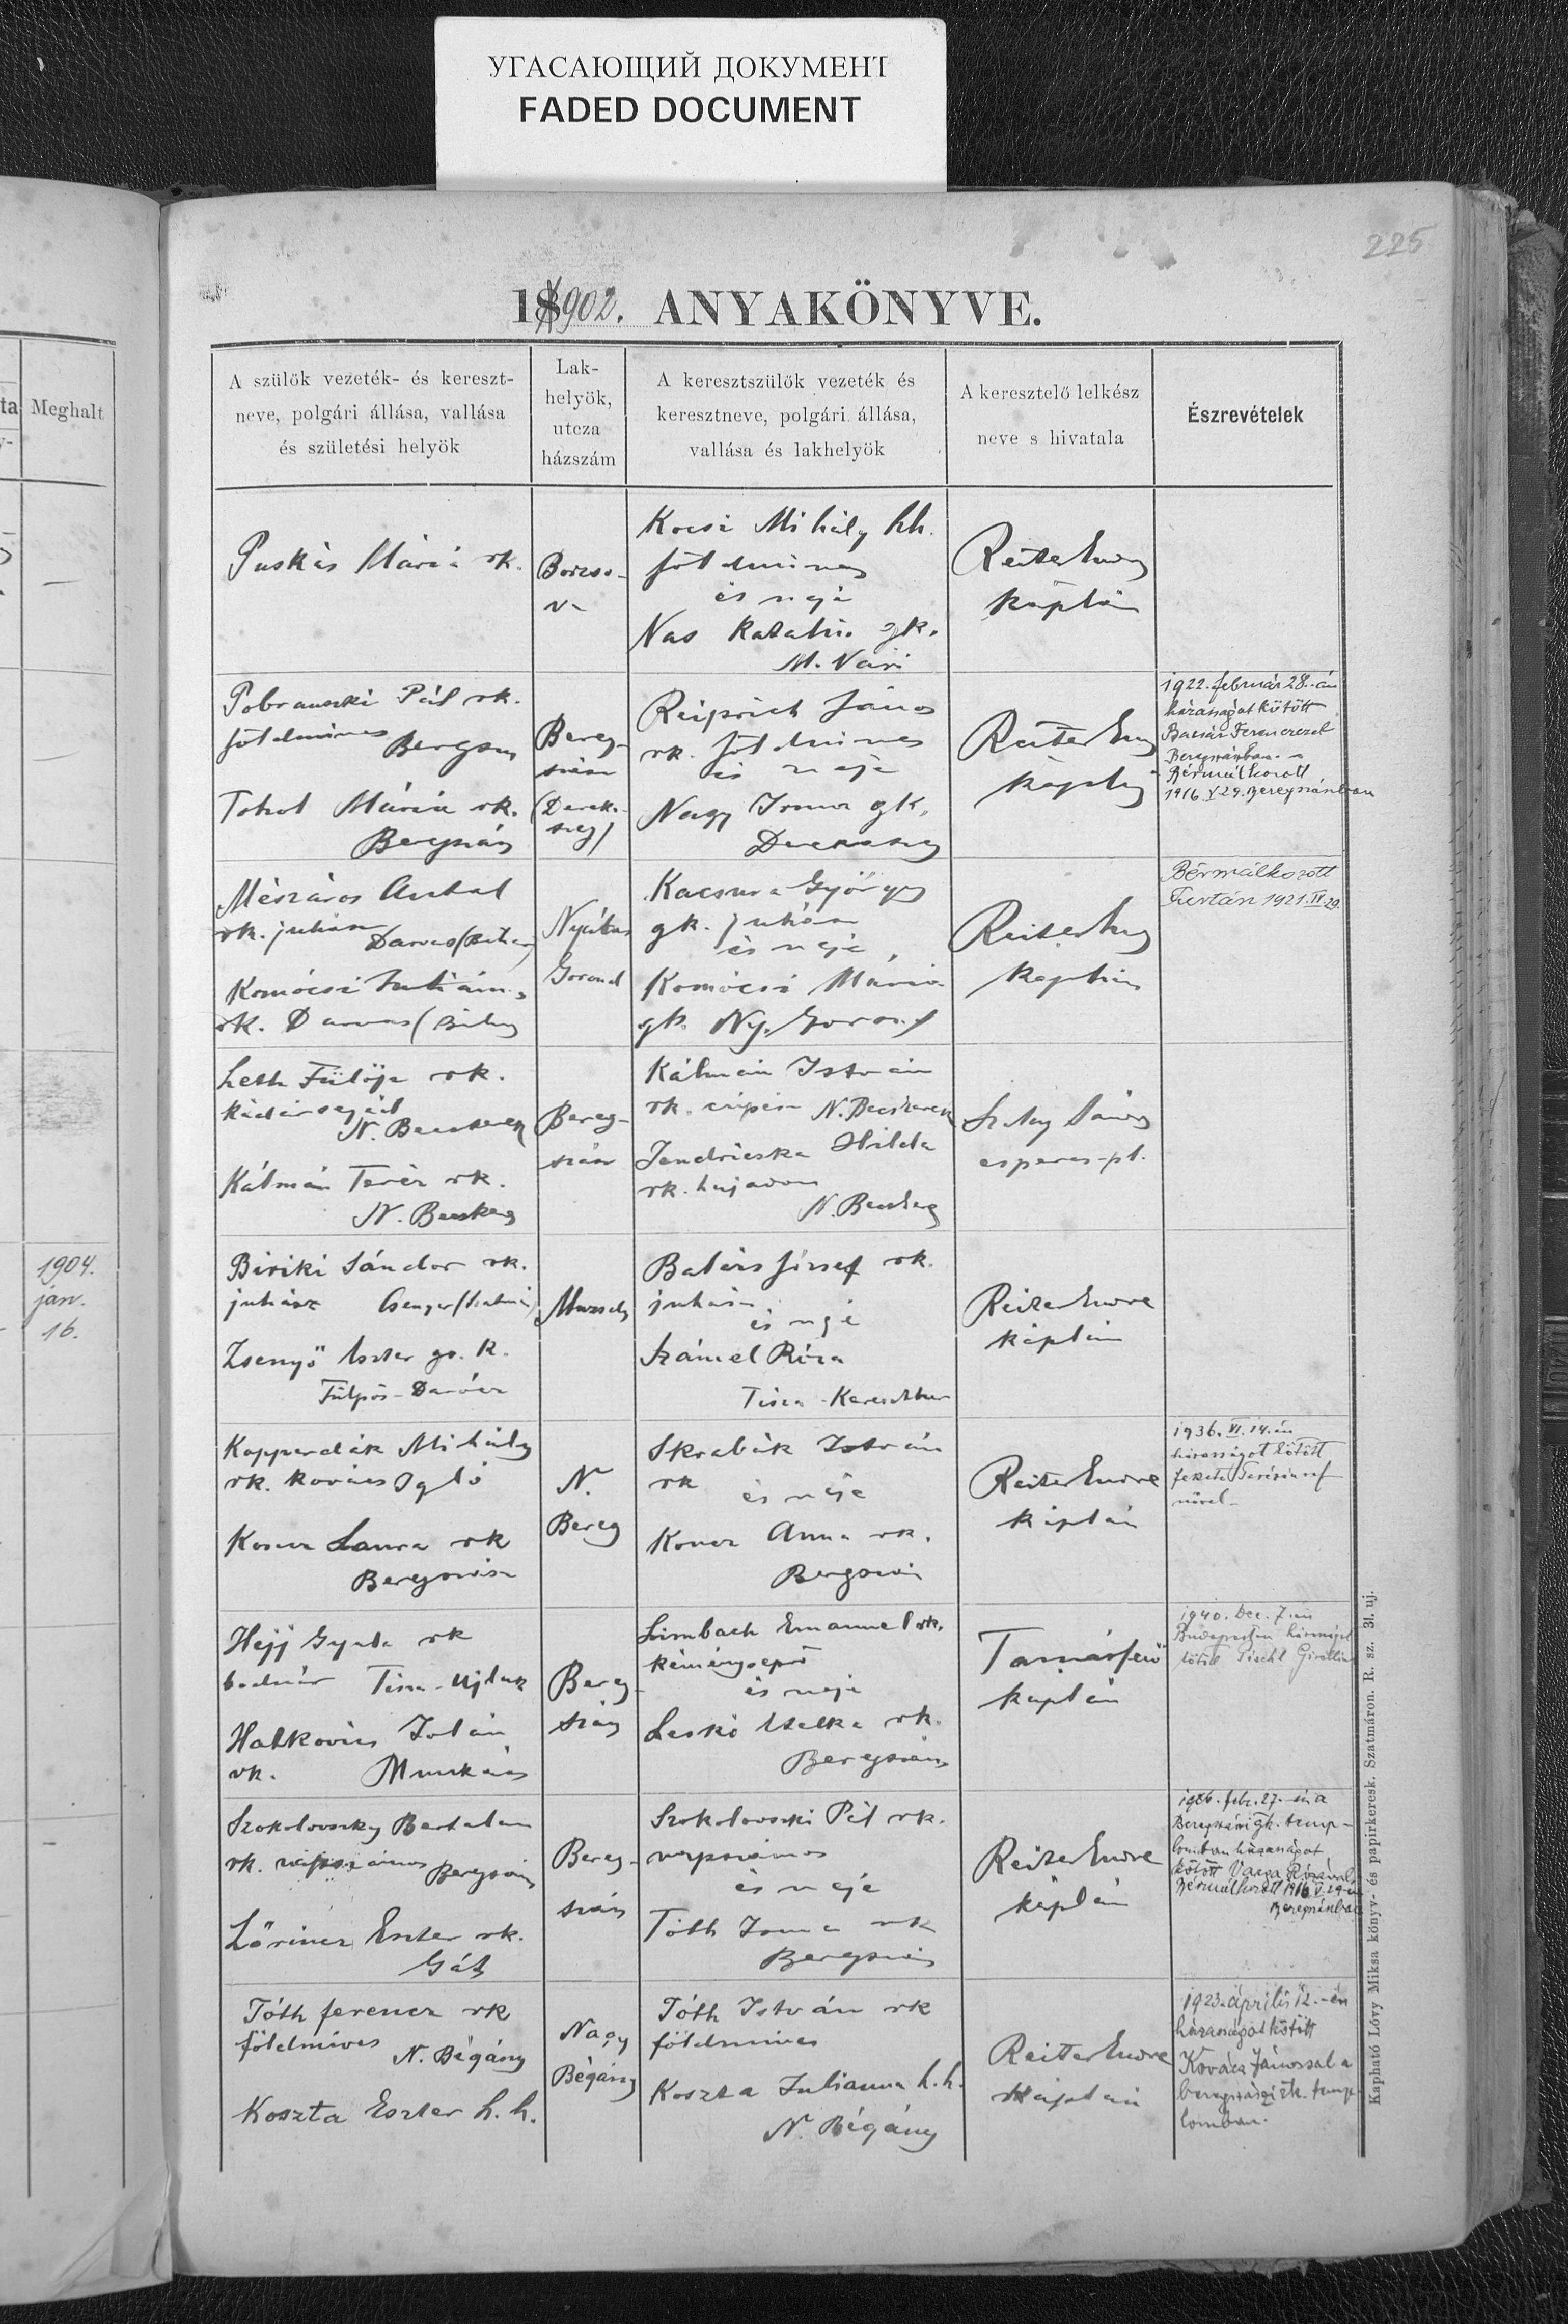 УГАСАЮЩИЙ ДОКУМЕНТ
FADED DOCUMENT
225
1902. ANYAKÖNYVE.
ta
Meghalt
A szülők vezeték- és kereszt-
neve, polgári állása, vallása
és születési helyök
Lak-
helyök,
utcza
házszám
A keresztszülők vezeték és
keresztneve, polgári állása,
vallása és lakhelyök
A keresztelő lelkész
neve s hivatala
Észrevételek
Puskás Mária rk.
Borzso-
va
Kocsi Mihály hh.
földmives
és neje
Nas Katalin gk.
M. Vári
Reiter Endre
káplán
Pobranszki Pál rk.
földmives
Bergszász
Tokol Mária rk.
Beregszász
Bereg-
szász
(Derek-
szeg)
Reiprich János
rk. földmives
és neje
Nagy Irma gk.
Derekaszeg
Reiter Endre
káplán
1922. február 28.-án
házasságot kötött
Ferenczczel
Beregszászban. -
Bérmálkozott
1916 V 29. Beregszászban
Mészáros Antal
rk. juhász
Darvas (Bihar)
Komócsi
rk. Darvas (Bihar)
Nyíltas
Gorond
Kacsura György
gk. juhász
és neje
Komócsi Mária
gk. Ny. Gorond
Reiter Endre
káplán
Bérmálkozott
1921. IV. 29.
Leth Fülöp rk.
kádársegéd
N. Becskerek
Kálmán Teréz rk.
N. Becskerek
Bereg-
szász
Kálmán István
rk. czipész N. Becskerek
Jendricska Hilda
rk. hajadon
N. Becskerek
János
esperes-pl.
1904.
jan.
16.
Biriki Sándor rk.
juhász Csenger (Szatmár)
Zsenyő Eszter gr. k.
Fülpös-Darócz
Muzsaly
Balázs József rk.
juhász
és neje
Számel Róza
Tisza-Keresztur
Reiter Endre
káplán
Kopperdák Mihály
rk. kovács Igló
Laura rk
Beregszász
N.
Bereg
Skrabák István
rk
és neje
Koncz Anna rk.
Bergszász
Reiter Endre
káplán
1936. VI. 14.-én
házasságot kötött
fekete Terézia ref
nővel -
Héjj Gyula rk
bodnár Tisza-Ujlak
Halkovics Jolán
rk. Munkács
Bereg-
szász
Limbach Emanuel rk.
kéményseprő
és neje
Leskó Etelka rk.
Beregszász
káplán
1940. Dec. 7.-én
Budapesten házasságot
kötött
Szokolovszky Bertalan
rk. napszámos
Bergszász
Lőrincz Eszter rk.
Gát
Bereg-
szász
Szokolovszki Pál rk.
napszámos
és neje
Tóth Irma rk
Bergszász
Reiter Endre
káplán
1926. febr. 27.-én a
Beregszászi gk. temp-
lomban házasságot
kötött Varga Rózával,
Bérmálkozott 1916 V. 29-én
Beregszászban
Tóth ferencz rk
földmives
N. Bégány
Koszta Eszter h. h.
Nagy
Bégány
Tóth István rk
földmives
Koszta Julianna h. h.
N. Bégány
Reiter Endre
káplán
1923. április 12.-én
házasságot kötött
Kovács Jánossal a
beregszászi rk. temp-
lomban.
Kapható Lővy Miksa könyv- és papirkeresk. Szatmáron. R. sz. 3l. uj.